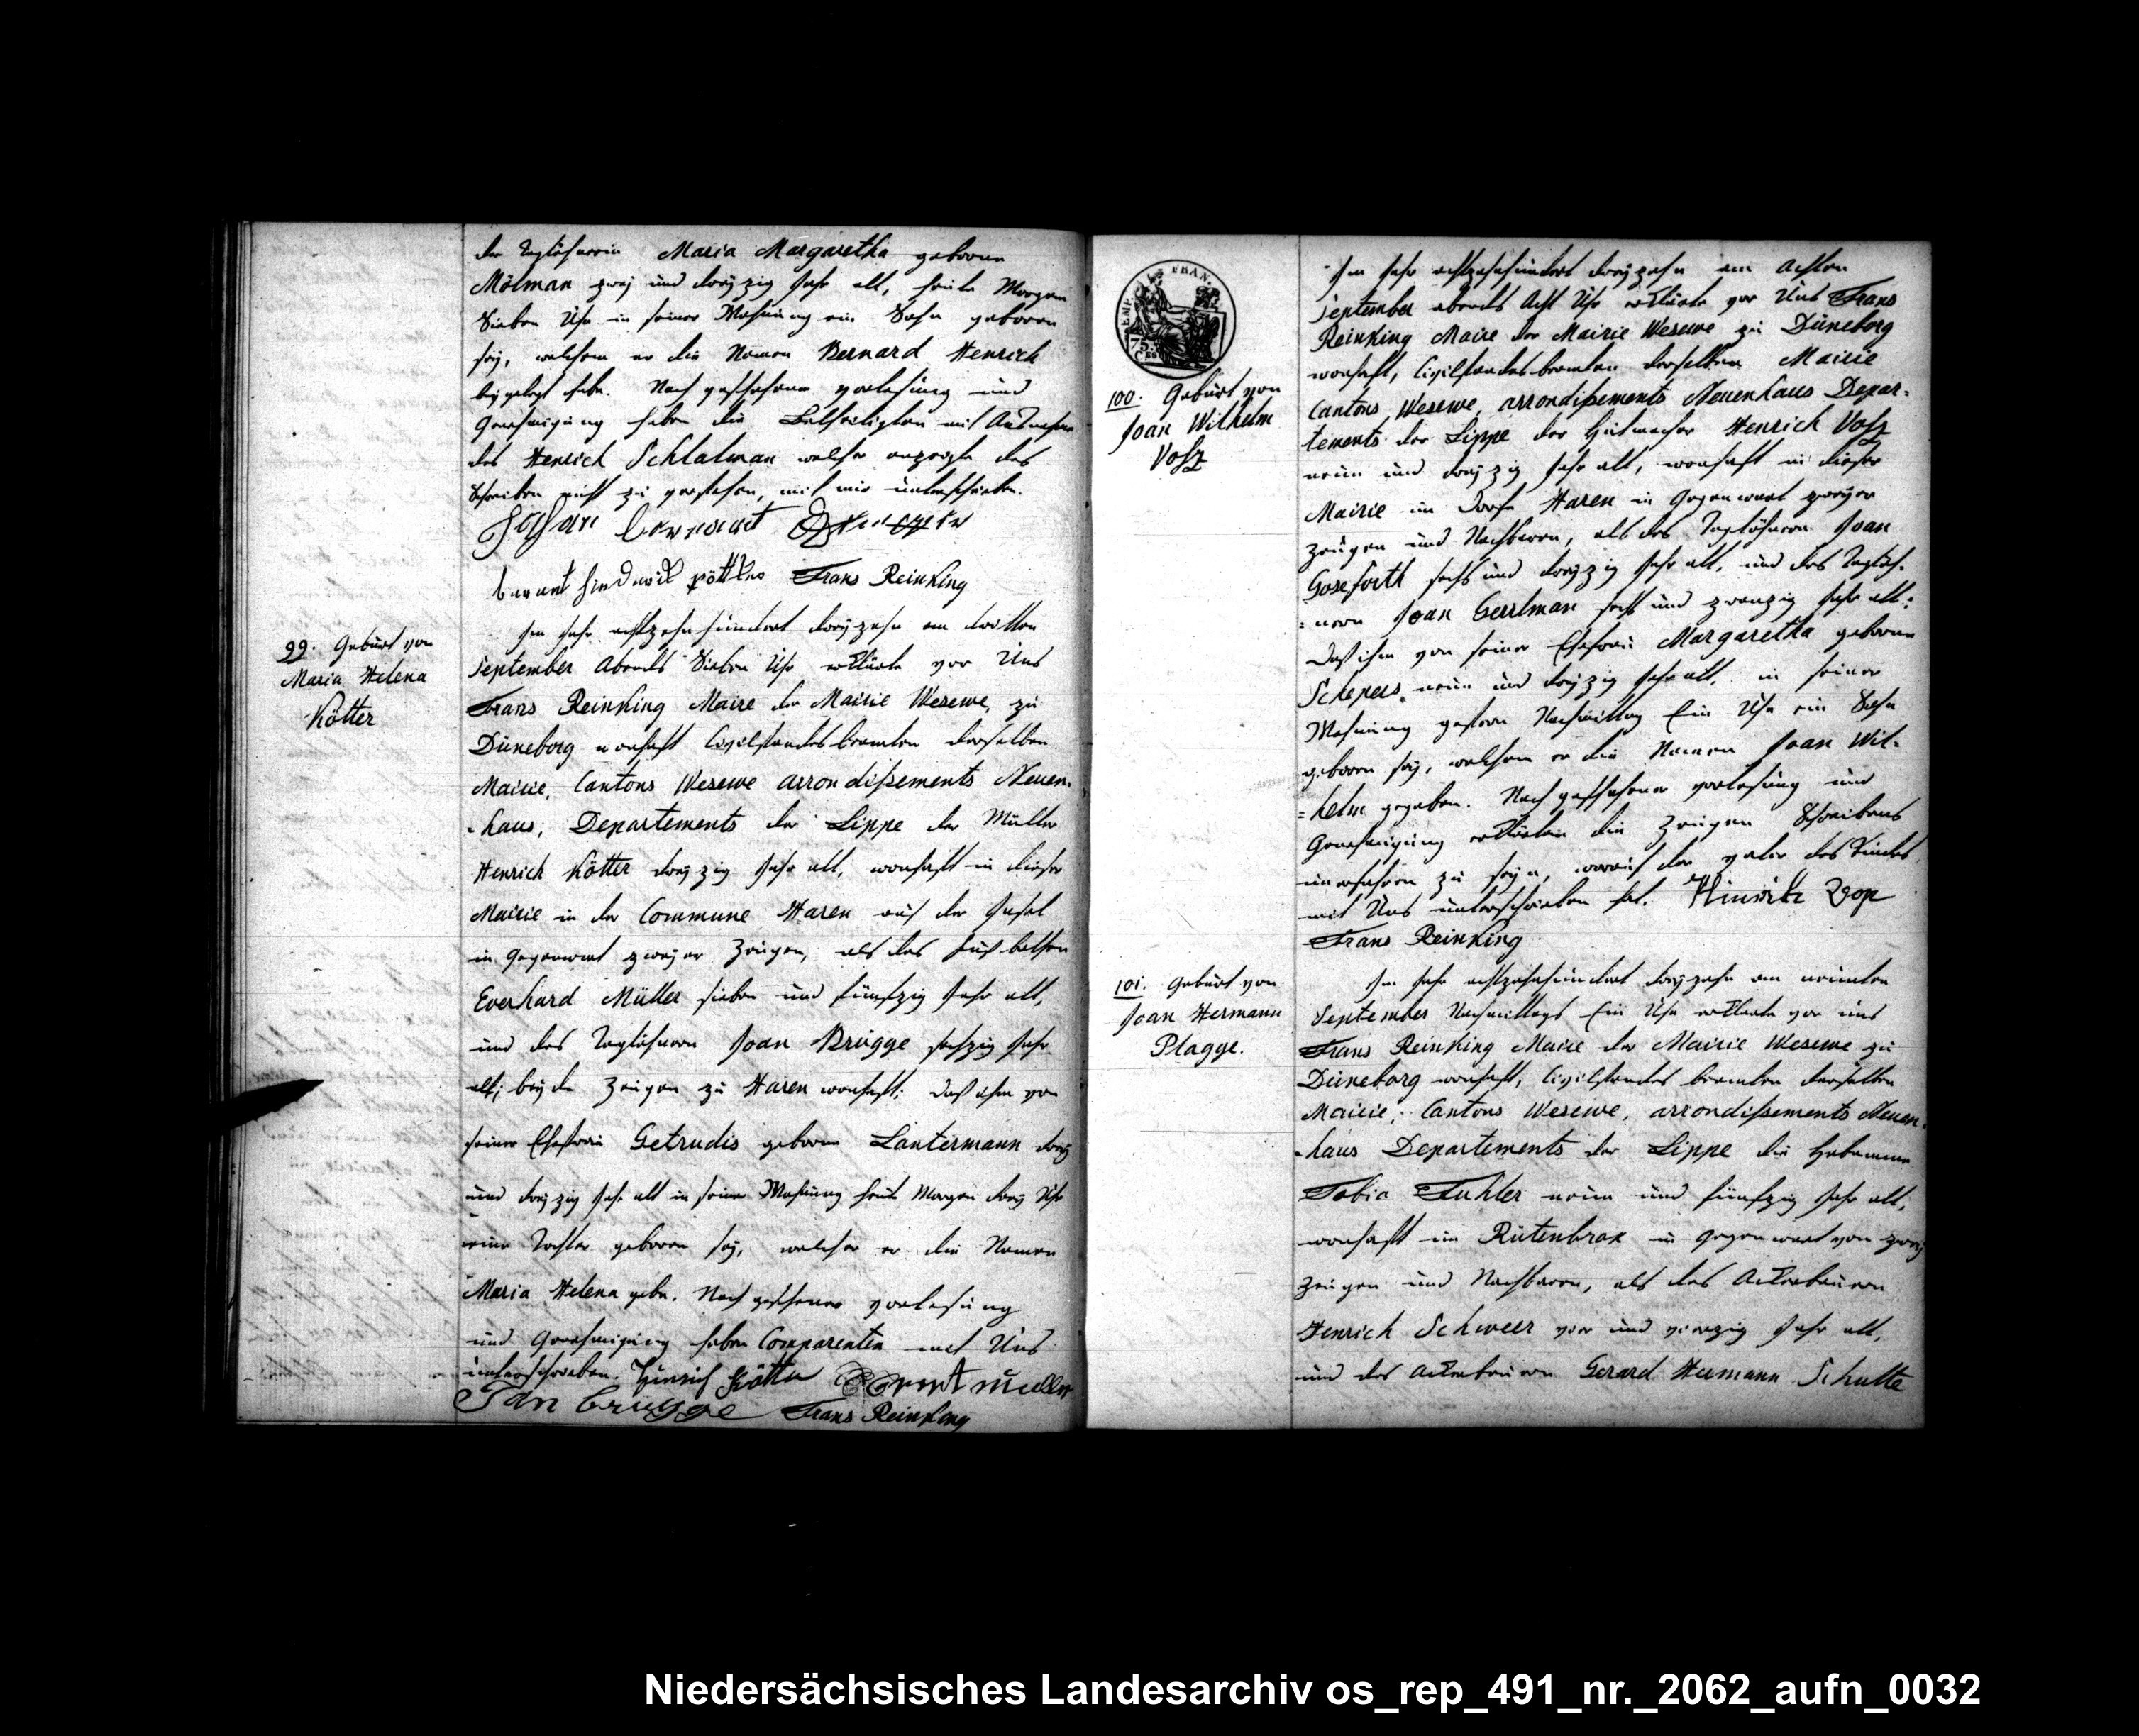 der Taglöhnerin Maria Margaretha geborne
Mölman zwej und dreÿzig Jahr alt, heute Morgen
Sieben Uhr in seiner Wohnung ein Sohn geboren
seÿ, welchem er die Namen Bernard Henrich
beÿgelegt habe. Nach geschehener vorlesung und
Genehmigung haben die Betheiligten mit Ausnahme
des Henrich Schlatman welcher anzeigte das
Schreiben nicht zu verstehen, mit mir unterschrieben.
Johan bernard
Frans Reinking
99. Geburt von
Maria Helena
Kötter
Im Jahr achtzehnhundert dreÿzehn am dritten
September Abends Sieben Uhr erklärte vor Uns
Frans Reinking Maire der Mairie Wesewe, zu
Düneborg wonhaft Civilstandesbeamten derselben
Mairie, Cantons Wesewe arrondißements Neuen-
-haus, Departements der Lippe der Müller
Henrich Kötter dreÿzig Jahr alt, wonhaft in dieser
Mairie in der Commune Haren auf der Insel
in Gegenwart zweÿer Zeugen, als des
Everhard Müller sieben und fünfzig Jahr alt,
und des Taglöhnern Joan Brügge sechzig Jahr
alt; beÿde Zeugen zu Haren wonhaft: daß ihm von
seiner Ehefrau Getrudis geborne Lantermann dreÿ
und dreÿzig Jahr alt in seiner Wohnung heute Morgen dreÿ Uhr
eine Tochter geboren seÿ, welcher er die Namen
Maria Helena gebe. Nach geschehener vorlesung
und Genehmigung haben Comparenten mit Uns
unterschrieben. Hinrich Kötter Evert müller
Jan brügge Frans Reinking
EMP. FRAN.
75.
C.ES
100. Geburt von
Joan Wilhelm
Voß
Im Jahr achtzehnhundert dreÿzehn am Achten
September abends Acht Uhr erklärte vor Uns Frans
Reinking Maire der Mairie Wesewe zu Düneborg
wonhaft, Civilstandesbeamten derselben Mairie
Cantons Wesewe, arrondißements Neuenhaus Depar-
tements der Lippe der Hutmacher Henrich Voß
neun und dreÿzig Jahr alt, wonhaft in dieser
Mairie im Dorfe Haren in Gegenwart zweÿer
Zeugen und Nachbaren, als des Taglöhnern Joan
Goseforth sechs und dreÿzig Jahr alt, und des Taglöh-
=nern Joan Gerlman sechs und zwanzig Jahr alt:
daß ihm von seiner Ehefrau Margaretha geborne
Schepers, neun und dreÿzig Jahr alt, in seiner
Wohnung gestern Nachmittag Ein Uhr ein Sohn
geboren seÿ, welchem er die Namen Joan Wil-
=helm gegeben. Nach geschehener vorlesung und
Genehmigung erklärten die Zeugen Schreibens
unerfahren zu seÿn, worauf der vater des Kindes
mit Uns unterschrieben hat. Hinrich Vos
Frans Reinking
101. Geburt von
Joan Hermann
Plagge.
Im Jahr achtzehnhundert dreÿzehn am neunten
September Nachmittags Ein Uhr erklärte vor uns
Frans Reinking Maire der Mairie Wesewe zu
Düneborg wonhaft, Civilstandes beamten derselben
Mairie, Cantons Wesewe, arrondißements Neuen-
-haus Departements der Lippe die Hebamme
Tobia Fuhler neun und fünfzig Jahr alt,
wonhaft im Rütenbrok in Gegenwart von zweÿ
Zeugen und Nachbaren, als des Ackerbauern
Henrich Schweer vier und vierzig Jahr alt,
und des Ackerbauern Gerard Hermann Schulte
Niedersächsisches Landesarchiv os_rep_491_nr._2062_aufn_0032